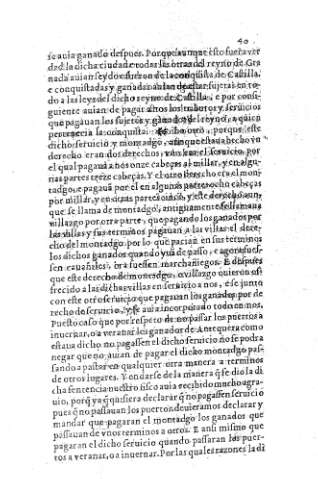 40
se auia ganado despues. Porque aunque esto fuera ver
dad la dicha ciudad e todas las otras del reyno de Gra
nada auian seydo e fueron de la conquista de Castilla,
e conquistadas y ganadas auian de estar sujetas en to-
do a las leyes del dicho reyno de Castilla, e por consi-
guiente auian de pagar a nos los tributos y seruicios
que pagauan los sujetos y ganados del reyno, a quien
pertenecia la conquista. Y lo otro, porque este
dicho seruicio y montadgo, aunque estaua hecho vn
derecho eran dos derechos, vno era el seruicio, por
el qual pagauã a nos onze cabeças al millar, y en algu-
nas partes treze cabeças. Y el otro derecho era el mon-
tadgo, e pagauã por el en algunas partes ocho cabeças
por millar, y en otras partes mas, y este derecho aun-
que se llama de montadgo, antiguamente se llamaua
villazgo por otra parte, que pagando los ganados por
las villas y sus terminos pagauan a las villas el dere-
cho del montadgo, por lo que pacian en sus terminos
los dichos ganados quando yuã de passo, e agora fues-
sen cauañiles, era fuessen marchaniegos. E despues
que este derecho de montadgo, o villazgo quieron us
frecido a las dichas villas en seruicio a nos, e se junto
con este otro seruicio que pagauan los ganados por de
recho de seruicio, y se auia incorporado todo en nos.
Puesto caso que por respeto de no passar los puertos a
inuernar, o a veranar los ganados de Antequera como
estaua dicho no pagassen el dicho seruicio no se podra
negar que no auian de pagar el dicho montadgo pas-
sando a pastar en qualquier otra manera a terminos
de otros lugares. Y en darse de la manera q̃ se dio la di
cha sentencia nuestro fisco auia recebido mucho agra-
uio, porq̃ ya q̃ quisiera declarar q̃ no pagassen seruicio
pues q̃ no passauan los puertos, deuieramos declarar y
mandar que pagaran el montadgo los ganados que
passauan de vnos terminos a otros. E ansi mismo que
pagaran el dicho seruicio quando passaran los puer-
tos a veranar, o a inuernar. Por las quales razones la di